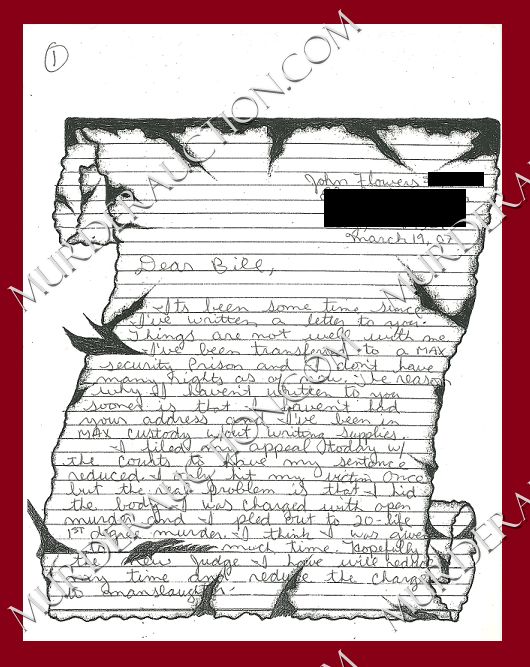 1
John Flowers
March 19, 07
Dear Bill,
Its been some time since
I've written a letter to you.
Things are not well with me
I've been transferred to a MAX
security Prison and I don't have
many rights as of now. The reason
why I haven't written to you
sooner is that I haven't had
your address and I've been in
MAX custody w/out writing supplies.
I filed my appeal today w/
the courts to have my sentence
reduced. I only hit my victim once
but the real problem is that I hid
the body. I was charged with open
murder and I pled out to 20-life
1ST degree murder. I think I was given
much time. Hopefully
the new Judge I have will reduce
my time and reduce the charge
to manslaughter.
MURDERAUCTION.COM
MURDERAUCTION.COM
MURDERAUCTION.COM